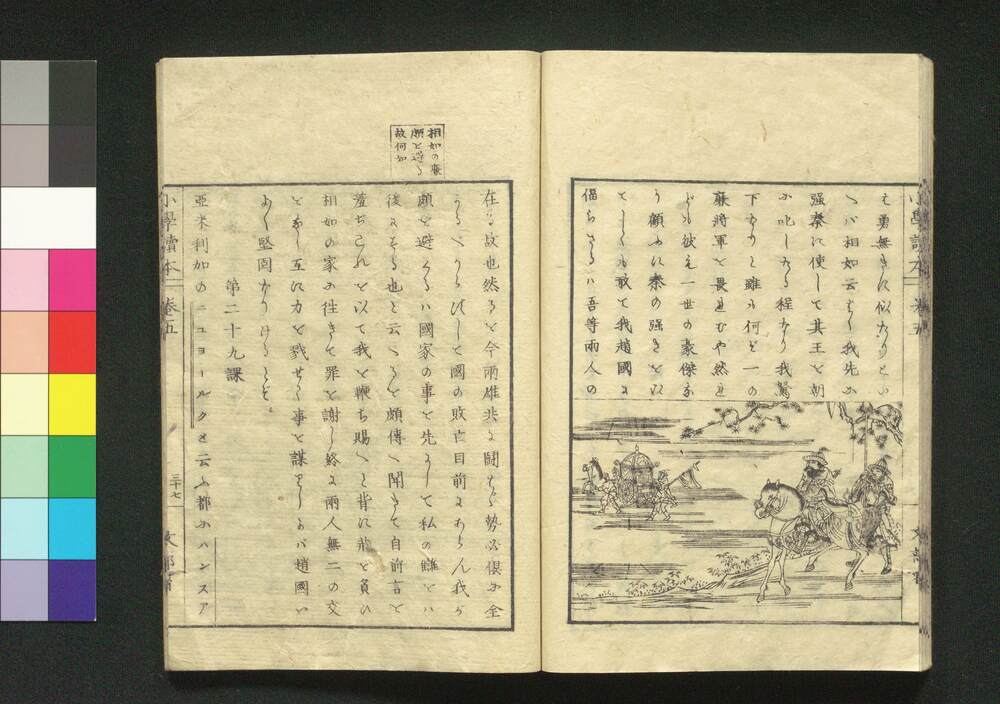 は勇無きに似たりといふ
へバ相如云ひらく我先に
強秦に使して其王を朝
に叱したる程なり我駑
下なりと雖も何ど一の
廉將軍を畏れむや然れ
ども彼も一世の豪傑な
り顧ふに秦の強きを以
てしても敢て我趙國に
偪らざるハ吾等兩人の
在る故也然るを今兩雄共に鬪はゞ勢必俱に全
國の敗亡目前にあらん我が
頗を避くるハ國家の事を先にして私の讎をバ
後にする也と云へるを頗傳へ聞きて自前言を
羞ぢこれを以て我を鞭ち賜へと背に荊を負ひ
相如の家に往きて罪を謝し終に兩人無二の交
を爲し互に力を戮せて事を謀りしかバ趙國い
よ〳〵堅固なりけるとぞ。
第二十九課
亞米利加のニユヨールクと云ふ都にハンスア
相如の廉
頗を避る
故何如
小學讀本
卷五
三十七
文部省